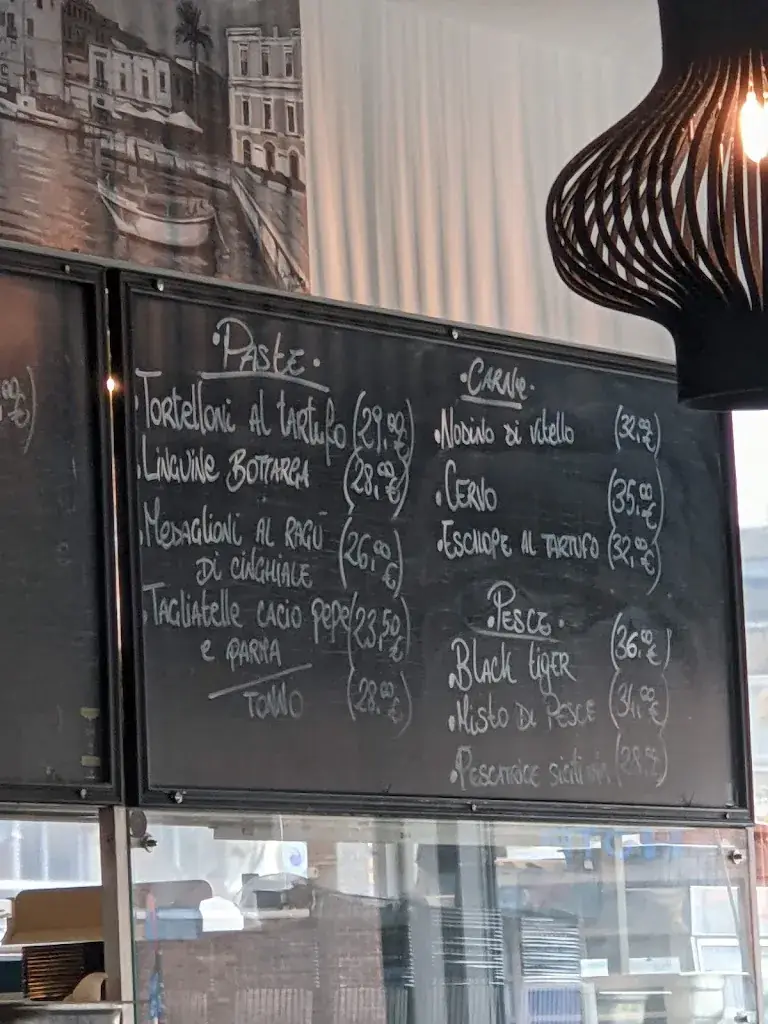 .Paste.
.Tortelloni al tartufo (29,00€)
.Linguine Bottarga (28,00€)
.Medaglioni al ragù (26,00€)
di cinghiale
.Tagliatelle cacio pepe (23,50€)
e parma
Tonno (28,00€)
.Carne.
.Nodino di vitello (32,00€)
.Cervo (35,00€)
.Escalope al tartufo (32,00€)
.Pesce.
.Black tiger (36,00€)
.Misto di pesce (34,00€)
.Pescatrice